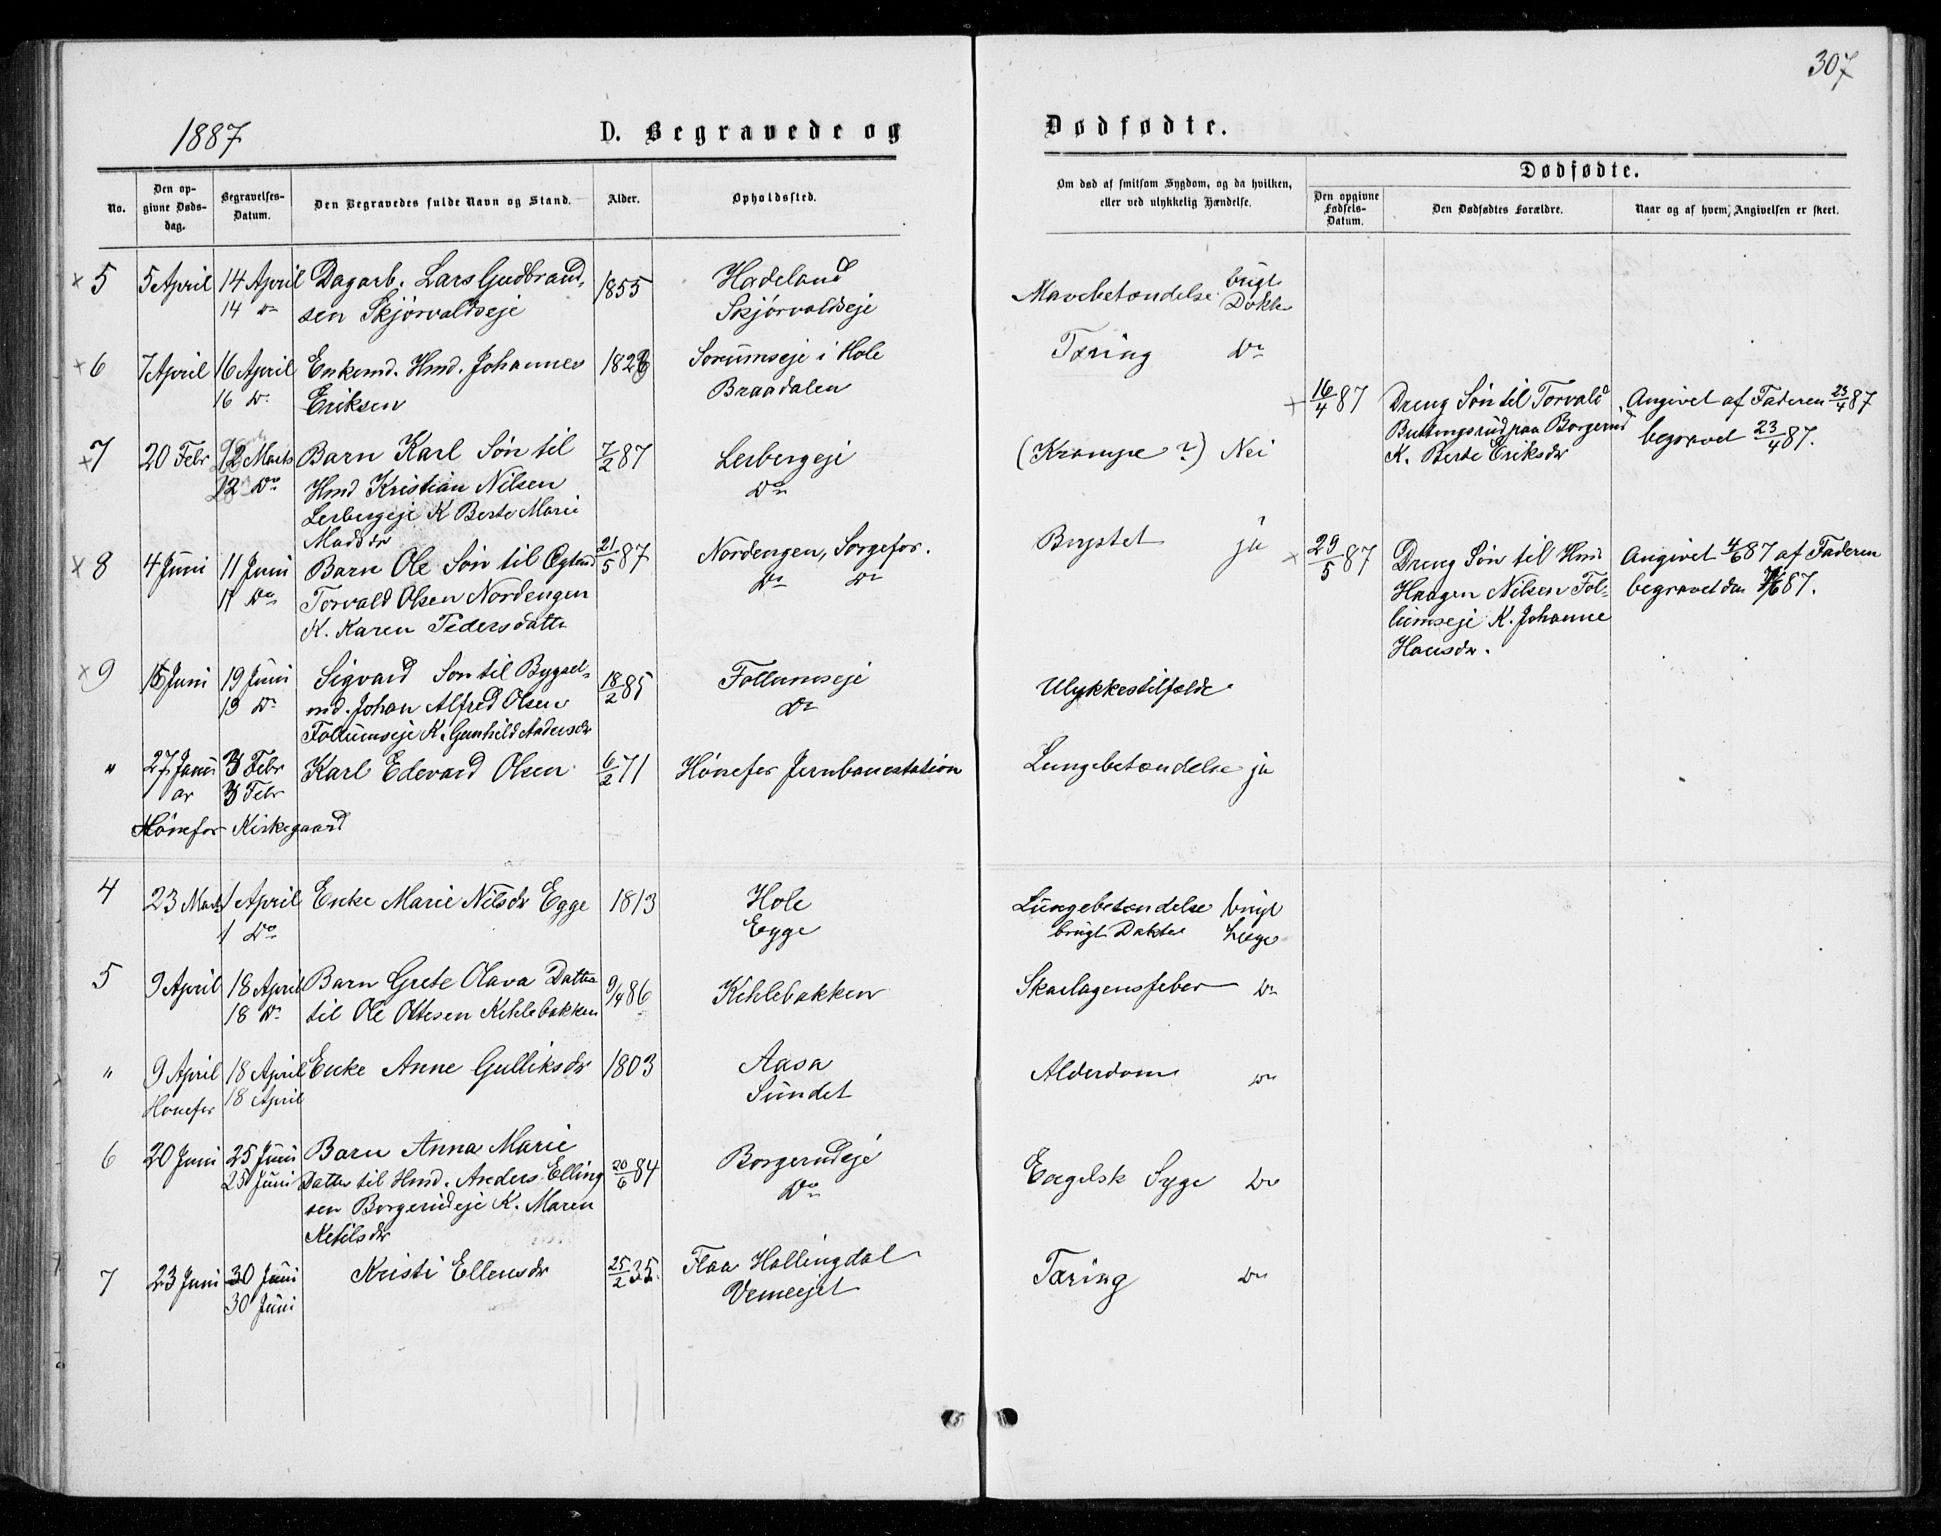 307
1887
D. Begravede og
Dødfødte.
No.
Den opgivne Døds-dag.
Begravelses-Datum.
Den Begravedes fulde Navn og Stand.
Alder.
Opholdssted.
Om død af smitsom Sygdom, og da hvilken, eller ved ulykkelig Hændelse.
Dødfødte.
Den opgivne Fødsels-Datum.
Den Dødfødtes Forældre.
Naar og af hvem, Angivelsen er skeet.
× 5 5 April 14 April Dagarb. Lars Gudbrand- 1855 Hadeland Mavebetændelse brugt
14 Do sen Skjørvaldseje Skjørvaldseje Dokt
× 6 7 April 16 April Enkemd. Hmd. Johannes 1826 Sorumseje i Hole Tæring Do
16 Do Eriksen Braadalen
× 16/4 87 Dreng Søn til Torvald Angivet af Faderen 23/4 87
Buttingsrud paa Borgerud begravet 23/4 87.
K. Berte Eriksdr
× 7 20 Febr 12 Marts Barn Karl Søn til 7/2 87 Lerbergeje (Krampe?) Nei
12 Do Hmd Kristian Nilsen Do
Lerbergeje K Berte Marie
Madsdr
× 8 4 Juni 11 Juni Barn Ole Søn til Ogtmd 21/5 87 Nordengen, Sorgefor. Brystet ja
11 Do Torvald Olsen Nordengen Do Do
K. Karen Pedersdatter
× 29/5 87 Dreng Søn til Hmd Angivet 4/6 87 af Faderen
Haagen Nilsen Fol- begravet den /6 87.
lumseje K. Johanne
Hansdr.
× 9 15 Juni 19 Juni Sigvard Søn til Bygsel- 18/2 85 Follumseje Ulykkestilfælde
19 Do md. Johan Alfred Olsen Do
Follumseje K. Gunhild Andersdr
" 27 Janu 3 Febr Karl Edevard Olsen 6/2 71 Hønefos Jernbanestation Lungebetændelse ja
ar 3 Febr
Hønefos Kirkegaard
4 23 Marts 1 April Enke Marie Nilsdr Egge 1813 Hole Lungebetændelse brugt
1 Do Egge brugt Dokter Læge
5 9 April 18 April Barn Grete Olava Datter 9/4 86 Kihlebakken Skarlagensfeber Do
18 Do til Ole Ottesen Kihlebakken
" 9 April 18 April Enke Anne Gulliksdr 1803 Aasa Alderdom Do
Hønefos 18 April Sundet
6 20 Juni 25 Juni Barn Anna Marie 20/6 84 Borgerudeje Engelsk Syge Do
25 Juni Datter til Hmd. Anders Elling Do
sen Borgerudeje K. Maren
Ketilsdr
7 23 Juni 30 Juni Kristi Ellensdr 25/2 35. Flaa Hallingdal Tæring Do
30 Juni Vemeejet